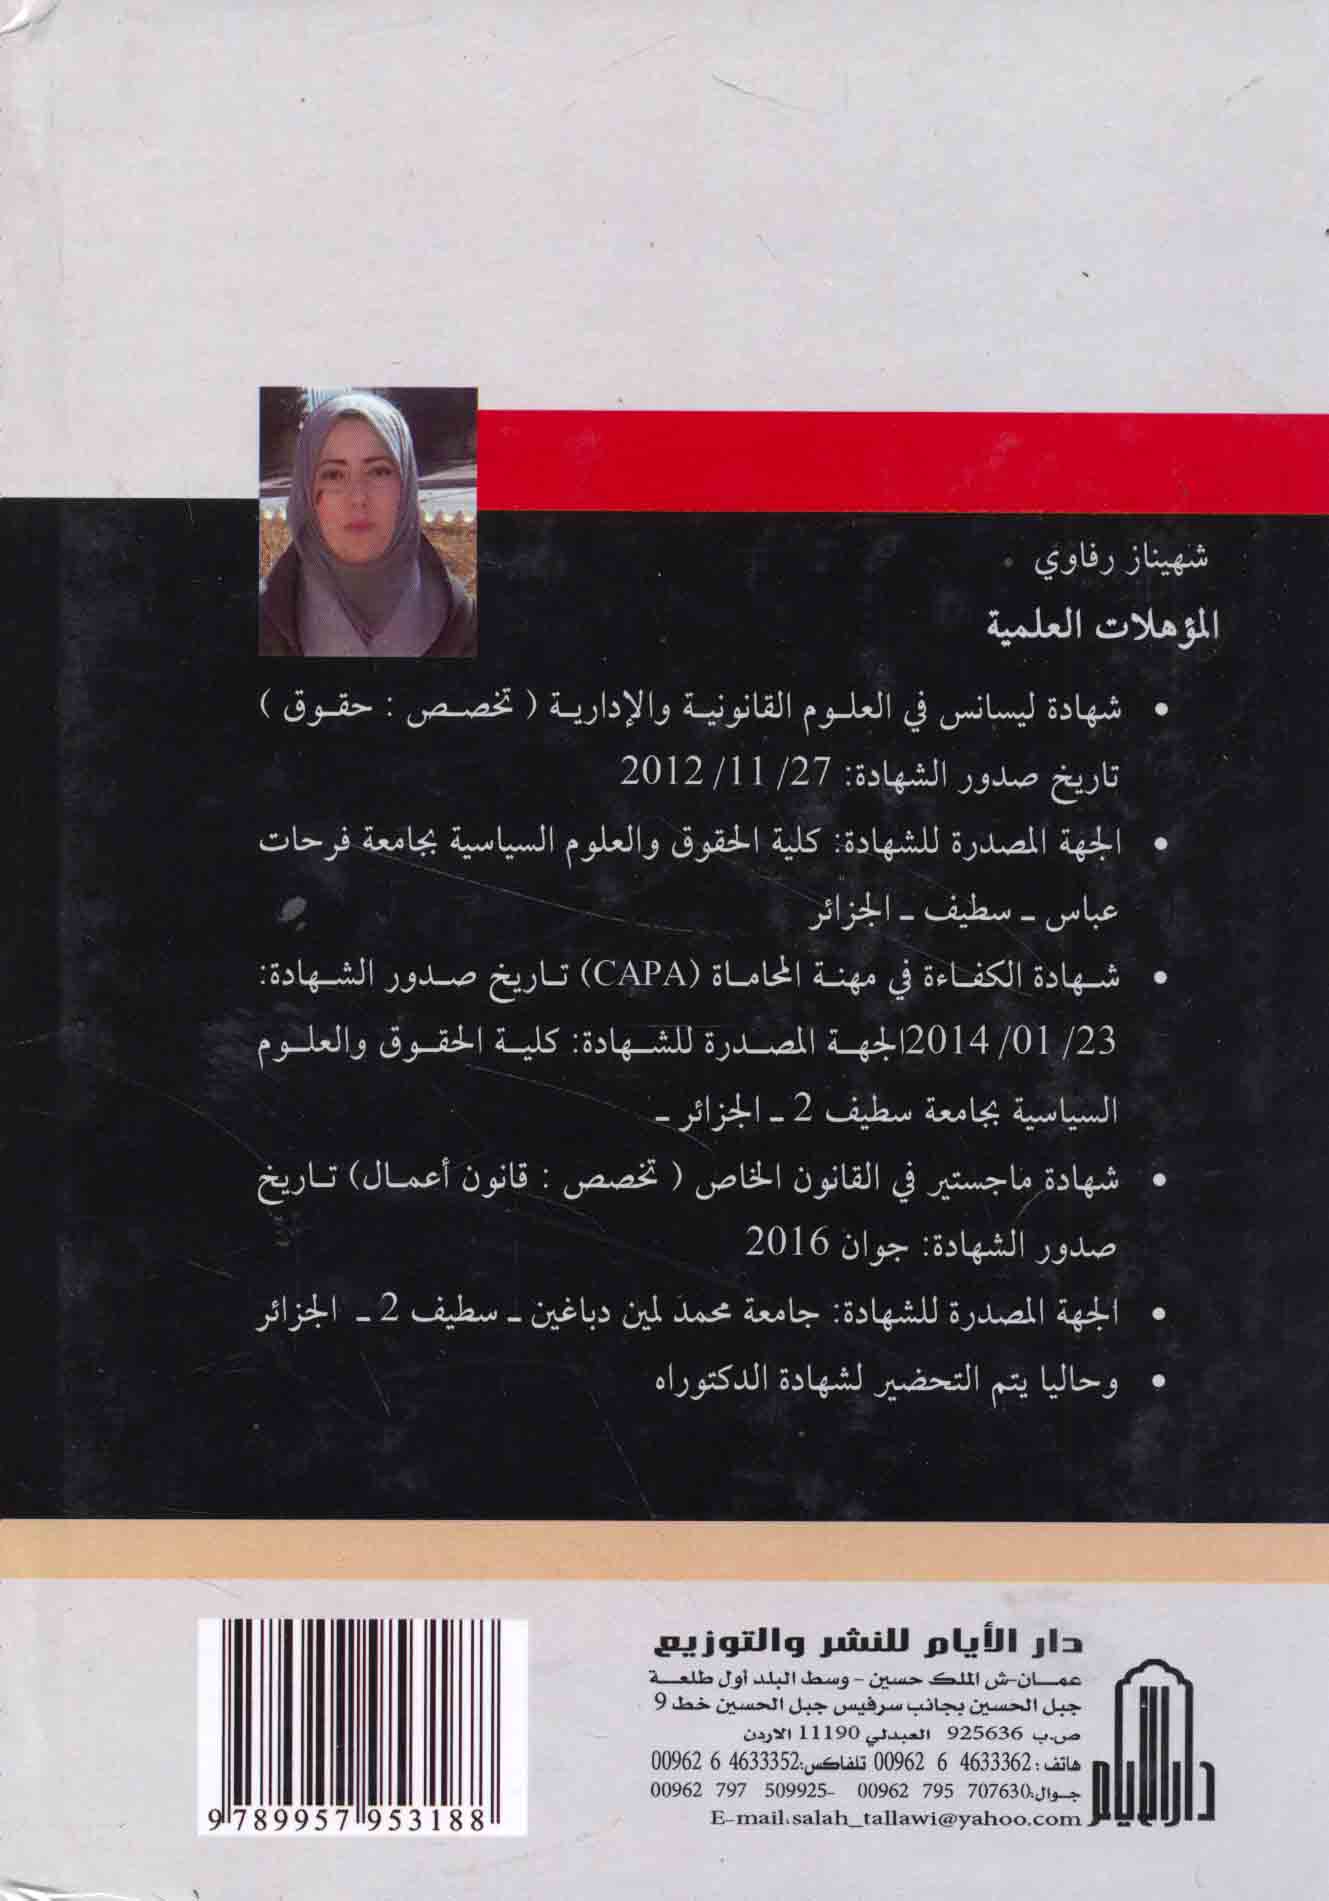 شهيناز رفاوي
المؤهلات العلمية
• شهادة ليسانس في العلوم القانونية والإدارية ( تخصص : حقوق )
تاريخ صدور الشهادة: 27/ 11/ 2012
• الجهة المصدرة للشهادة: كلية الحقوق والعلوم السياسية بجامعة فرحات
عباس ـ سطيف ـ الجزائر
• شهادة الكفاءة في مهنة المحاماة (CAPA) تاريخ صدور الشهادة:
23/ 01/ 2014الجهة المصدرة للشهادة: كلية الحقوق والعلوم
السياسية بجامعة سطيف 2 ـ الجزائر ـ
• شهادة ماجستير في القانون الخاص ( تخصص : قانون أعمال) تاريخ
صدور الشهادة: جوان 2016
• الجهة المصدرة للشهادة: جامعة محمد لمين دباغين ـ سطيف 2 ـ الجزائر
• وحاليا يتم التحضير لشهادة الدكتوراه
دار الأيام للنشر والتوزيع
عمان-ش الملك حسين - وسط البلد أول طلعة
جبل الحسين بجانب سرفيس جبل الحسين خط 9
ص.ب 925636 العبدلي 11190 الاردن
هاتف : 4633362 6 00962 تلفاكس:4633352 6 00962
جوال:707630 795 00962 -509925 797 00962
E-mail:salah_tallawi@yahoo.com
دار الأيام
9 789957 953188